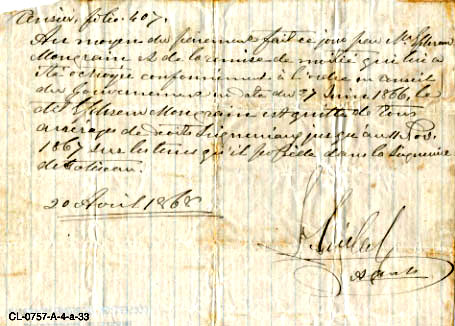 Censier, folio 407.
Au moyen du paiement fait ce jour par Mr Ephrem
Mongrain et de la remise de moitié qui lui a
été octroyée conformément à l'ordre en conseil
du Gouvernement en date du 27 Juin 1866, le
dit Ephrem Mongrain est quitte de tous
arrérages de droits Seigneuriaux jusqu'au 11 Nov.
1867 sur les terres qu'il possède dans la Seigneurie
de Batiscan.
20 Avril 1868
Agent
CL-0757-A-4-a-33